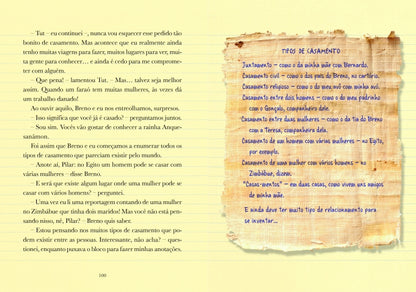 – Tut – eu continuei –, nunca vou esquecer esse pedido tão
bonito de casamento. Mas acontece que eu realmente ainda
tenho muitas viagens para fazer, muitos lugares para ver, mui-
ta gente para conhecer… e ainda é cedo para me comprome-
ter com alguém.
– Que pena! – lamentou Tut. – Mas… talvez seja melhor
assim. Quando um faraó tem muitas mulheres, às vezes dá
um trabalho danado!
Ao ouvir aquilo, Breno e eu nos entreolhamos, surpresos.
– Isso significa que você já é casado? – perguntamos juntos.
– Sou sim. Vocês vão gostar de conhecer a rainha Anque-
senamon.
Foi assim que Breno e eu começamos a enumerar todos os
tipos de casamento que pareciam existir pelo mundo.
– Anote aí, Pilar: no Egito um homem pode se casar com
várias mulheres – disse Breno.
– E será que existe algum lugar onde uma mulher pode se
casar com vários homens? – perguntei.
– Uma vez eu li uma reportagem contando de uma mulher
no Zimbábue que tinha dois maridos! Mas você não está pen-
sando nisso, né, Pilar? – Breno quis saber.
– Estou pensando nos muitos tipos de casamento que po-
dem existir entre as pessoas. Interessante, não acha? – ques-
tionei, enquanto puxava o bloco para fazer minhas anotações.
100
TIPOS DE CASAMENTO
Juntamento – como o da minha mãe com Bernardo.
Casamento civil – como o dos pais do Breno, no cartório.
Casamento religioso – como o do meu avô com minha avó.
Casamento entre dois homens – como o do meu padrinho
com o Gonçalo, companheiro dele.
Casamento entre duas mulheres – como o da tia do Breno
com a Teresa, companheira dela.
Casamento de um homem com várias mulheres – no Egito,
por exemplo.
Casamento de uma mulher com vários homens – no
Zimbábue, dizem.
"Casas-mentos" – em duas casas, como vivem uns amigos
de minha mãe.
E ainda deve ter muito tipo de relacionamento para
se inventar…